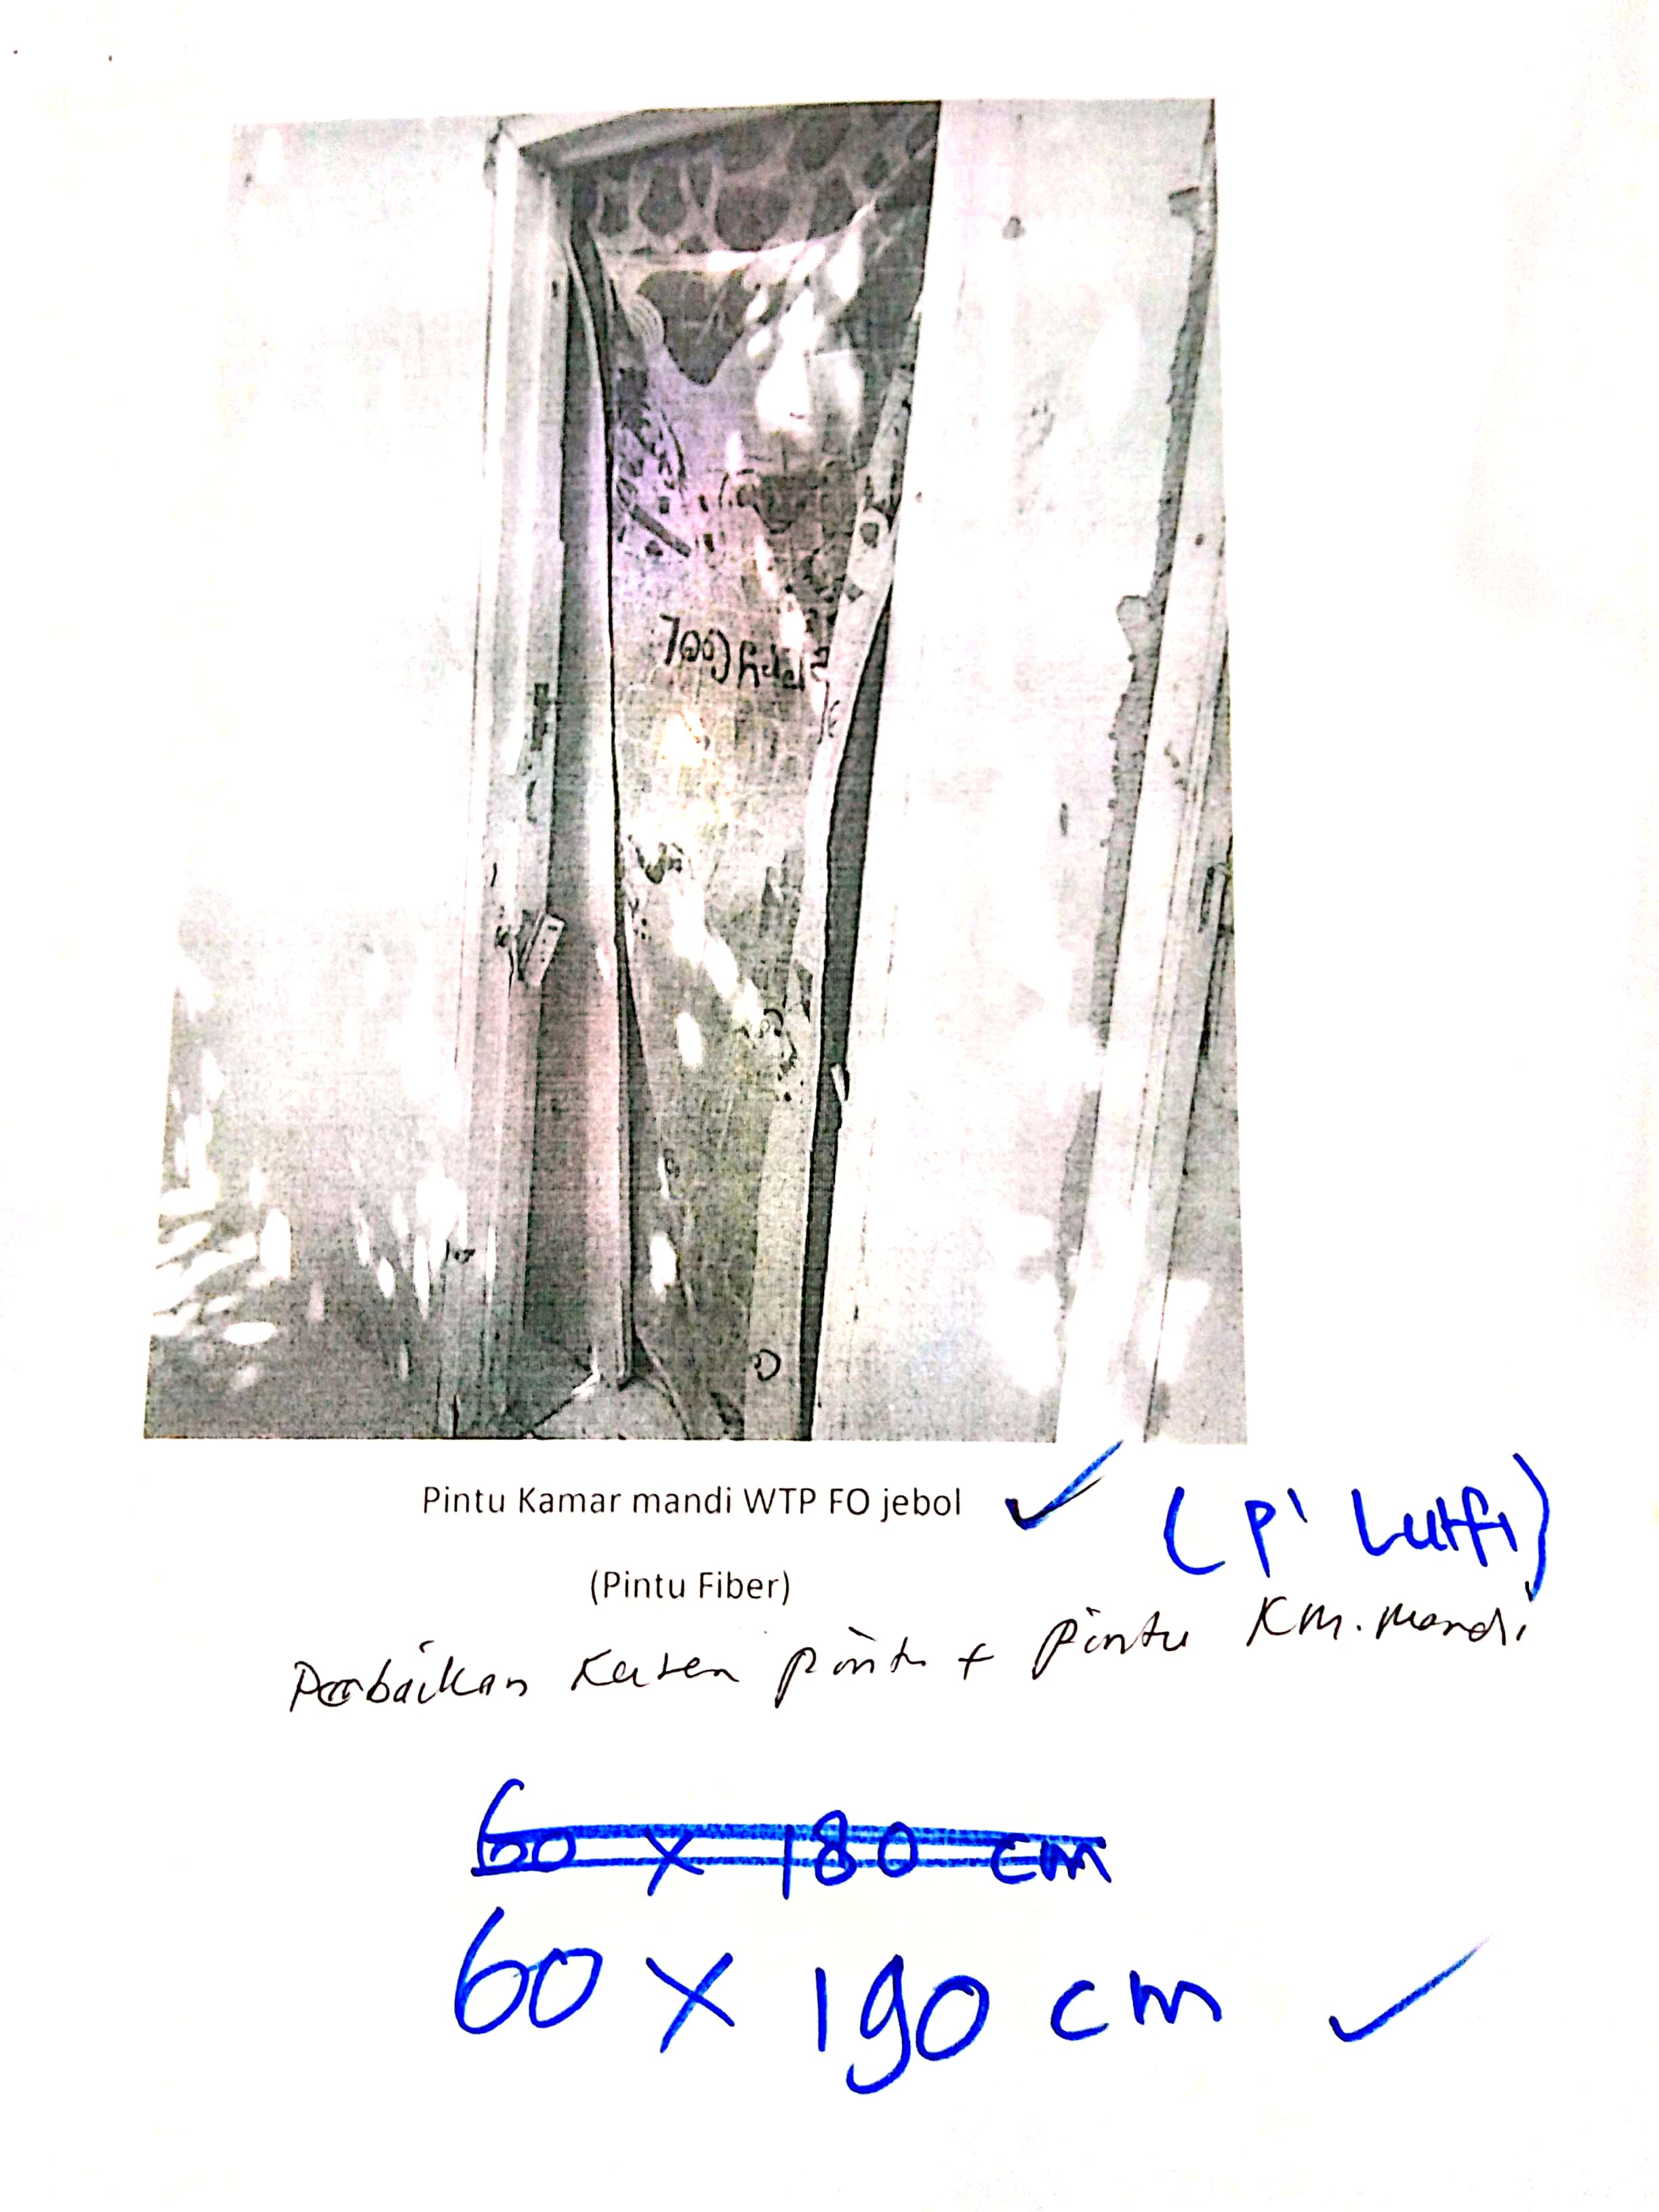 Pintu Kamar mandi WTP FO jebol ✓
(P' Lutfi)
(Pintu Fiber)
Perbaikan Kusen pintu + pintu KM. Mandi
60 x 180 cm
60 x 190 cm ✓